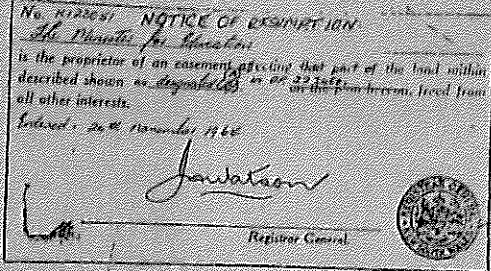 No. K122051 NOTICE OF RESUMPTION
The Minister for Education
is the proprietor of an easement affecting that part of the land within
described shown as designated (A) in DP
on the plan hereon, freed from
all other interests.
Entered: 20th November 1964
Jawatson
Registrar General
REGISTRAR GENERAL